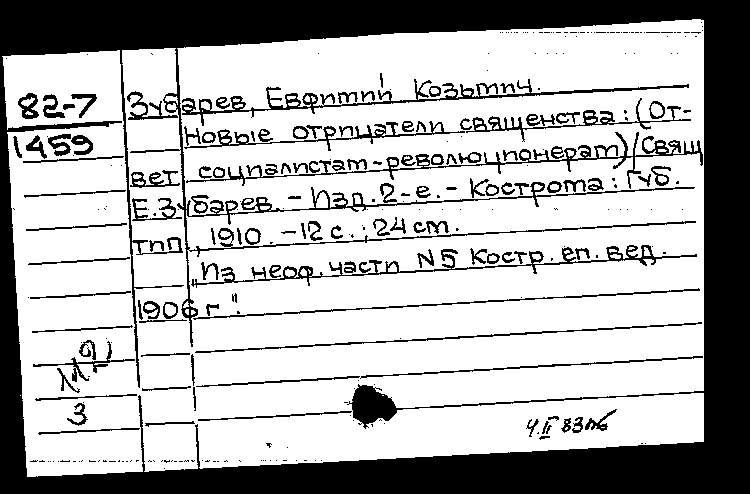 82-7
1459
Зубарев, Евфимий Козьмич.
Новые отрицатели священства: (От-
вет социалистам-революционерам)/Свящ
Е. Зубарев. - Изд. 2-е. - Кострома: Губ.
тип., 1910. - 12 с.; 24 см.
„Из неоф. части N5 Костр. еп. вед.
1906 г".
3
4.II 83